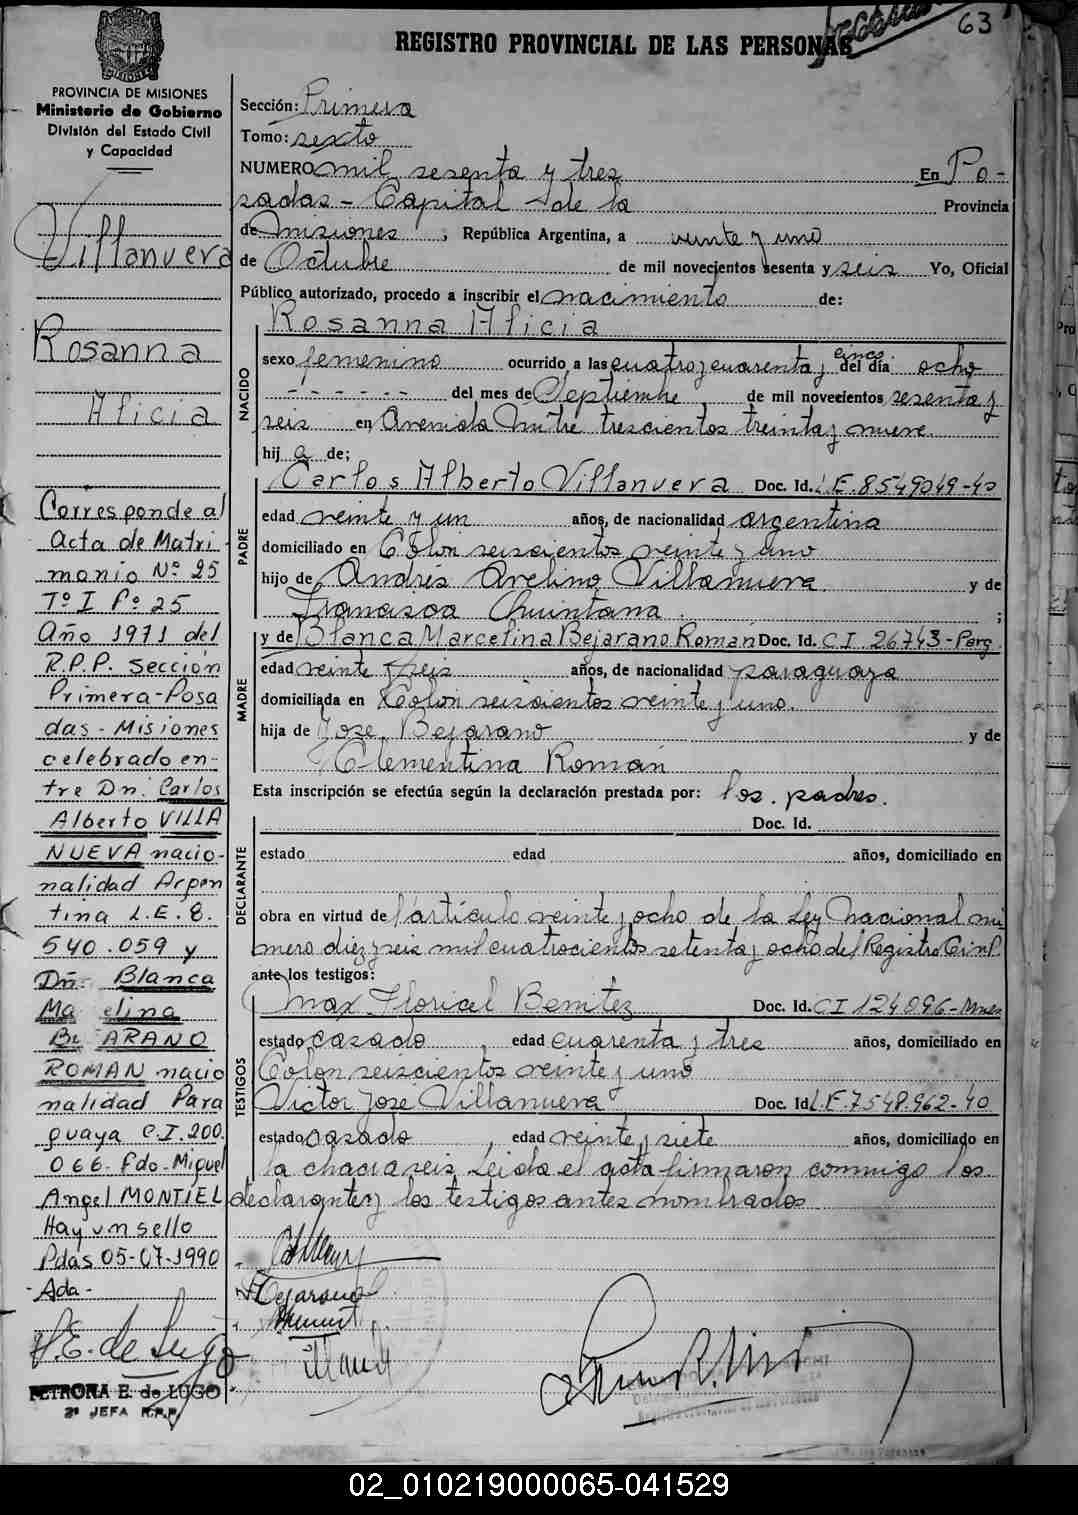 63
REGISTRO PROVINCIAL DE LAS PERSONAS
MISIONES
PROVINCIA DE MISIONES
Ministerio de Gobierno
División del Estado Civil
y Capacidad
Villanueva
Rosanna
Alicia
Corresponde al
Acta de Matri
monio Nº 25
Tº I Fº 25
Año 1971 del
R.P.P. sección
Primera-Posa
das-Misiones
celebrado en-
tre Dn. Carlos
Alberto VILLA
NUEVA nacio-
nalidad Argen
tina L.E. 8.
540.059 y
Dñ. Blanca
Ma elina
ARANO
ROMAN nacio
nalidad Para
guaya C.I. 200.
066. Fdo. Miguel
Angel MONTIEL
Hay un sello
Pdas 05-07-1990
-Ada-
P.E. de Lugo
PETRONA E. de LUGO
2ª JEFA R.P.P.
Sección: Primera
Tomo: sexto
NUMERO mil sesenta y tres En Po-
sadas - Capital de la Provincia
de Misiones, República Argentina, a veinte y uno
de Octubre de mil novecientos sesenta y seis Yo, Oficial
Público autorizado, procedo a inscribir el nacimiento de:
NACIDO
Rosanna Alicia
sexo femenino ocurrido a las cuatro y cuarenta y cinco del día ocho
- - - - - - del mes de Septiembre de mil novecientos sesenta y
seis en Avenida Mitre trescientos treinta y nueve
hij a de;
PADRE
Carlos Alberto Villanueva Doc. Id. L.E. 8549049-40
edad veinte y un años, de nacionalidad argentina
domiciliado en Colon seiscientos veinte y uno
hijo de Andrés Avelino Villanueva y de
Francisca Quintana ;
MADRE
y de Blanca Marcelina Bejarano Roman Doc. Id. C.I. 26743-Parg.
edad veinte y seis años, de nacionalidad paraguaya
domiciliada en Colon seiscientos veinte y uno.
hija de José Bejarano y de
Clementina Román
Esta inscripción se efectúa según la declaración prestada por: los padres.
DECLARANTE
Doc. Id.
estado edad años, domiciliado en
obra en virtud de l'artículo veinte y ocho de la Ley Nacional nú
mero diez y seis mil cuatrocientos setenta y ocho del Registro Civil.
ante los testigos:
TESTIGOS
Max Floricel Benitez Doc. Id. CI 124096-Mnes
estado casado, edad cuarenta y tres años, domiciliado en
Colon seiscientos veinte y uno
Victor José Villanueva Doc. Id. L.E. 7548.962-40
estado casado, edad veinte y siete años, domiciliado en
la chacra seis. Leida el acta firmaron conmigo los
declarantes y los testigos antes nombrados
Bejarano
02_010219000065-041529